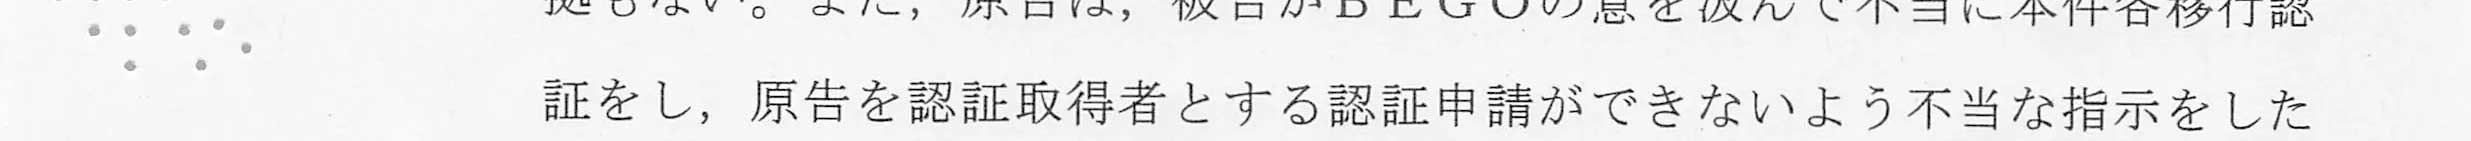 拠もない。また，原告は，被告がＢＥＧＯの意を汲んで不当に本件各移行認
証をし，原告を認証取得者とする認証申請ができないよう不当な指示をした